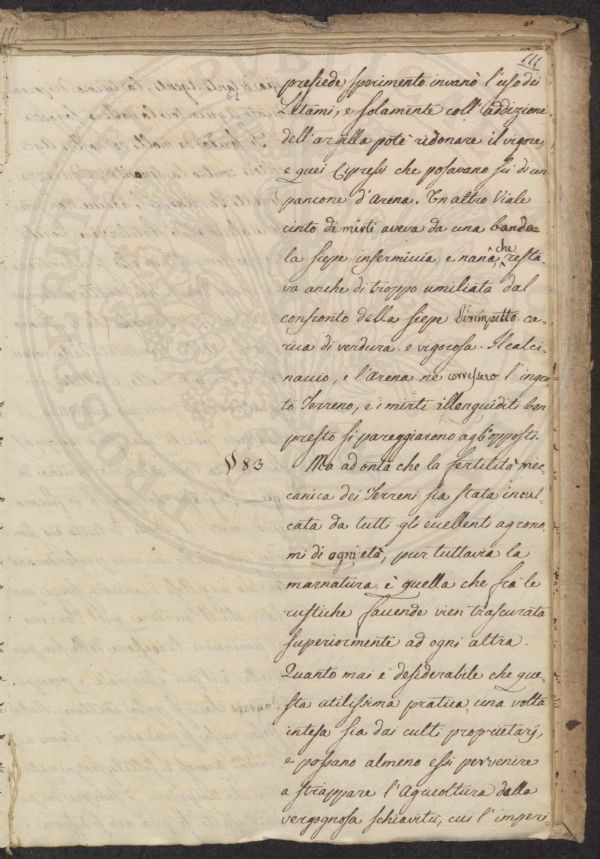 111
presiede sperimento invano l'uso dei
Letami, e solamente coll'addizione
dell'argilla potè ridonare il vigore
a quei Cipressi che posavano su di un
pancone d'Arena. Un altro Viale
cinto di mirti aveva da una banda
la siepe infermiccia, e nana, che resta-
va anche di troppo umiliata dal
confronto della siepe dirimpetto ca-
rica di verdura, e vigorosa. Il calci-
naccio, e l'Arena ne corressero l'ingra-
to Terreno, e i mirti illanguiditi ben
presto si pareggiarono agli opposti.
§ 83. Ma ad onta che la fertilità mec-
canica dei Terreni sia stata incul-
cata da tutti gli eccellenti agrono-
mi di ogni età, pur tuttavia la
marnatura è quella che frà le
rustiche faccende vien trascurata
superiormente ad ogni altra.
Quanto mai è desiderabile che que-
sta utilissima pratica una volta
intesa sia dai culti proprietarj,
e possano almeno essi pervenire
a strappare l'Agricoltura dalla
vergognosa schiavitù, cui l'imperi-